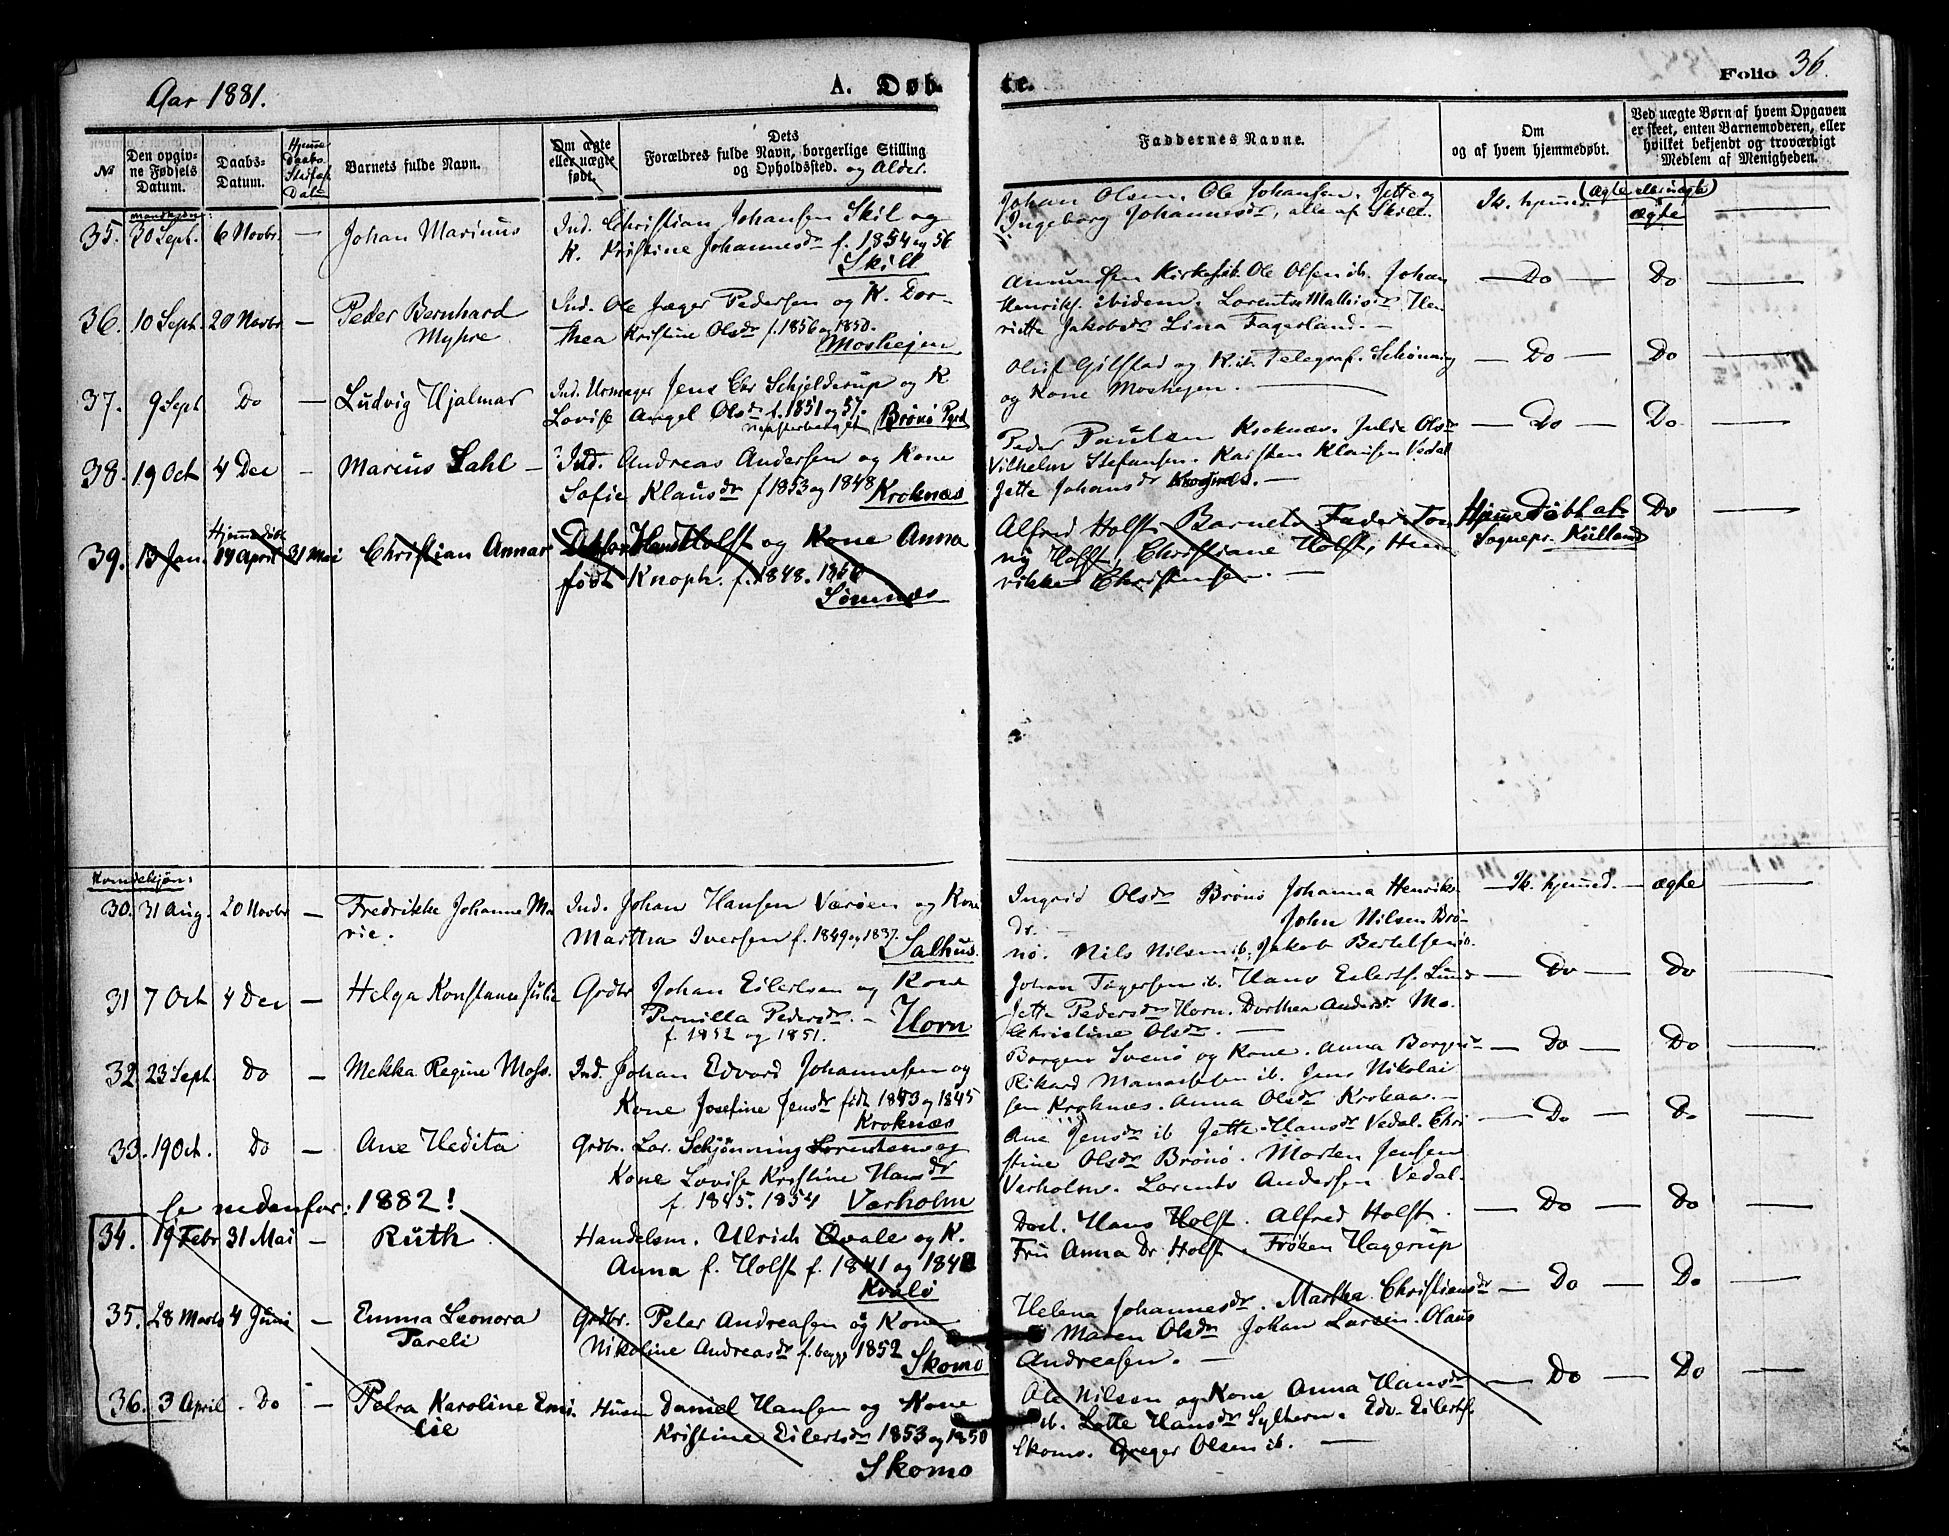 Aar 1881.
A. Døb
te.
Folio 36.
№
Den opgiv-
ne Fødsels
Datum.
Daabs-
Datum.
Hjemme
Daabs
Dat
Barnets fulde Navn.
Om ægte
eller uægte
født.
Dets
Forældres fulde Navn, borgerlige Stilling
og Opholdssted. og Alder.
Faddernes Navne.
Om
og af hvem hjemmedøbt.
Ved uægte Børn af hvem Opgaven
er skeet, enten Barnemoderen, eller
hvilket bekjendt og troværdigt
Medlem af Menigheden.
(ægte eller uægte)
Mandkjøn:
35. 30 Sept. 6 Novbr. — Johan Marinus Ind. Christian Johansen Skil og
K. Kristine Johannesdr f. 1854 og 56
Skill
Johan Olsen. Ole Johansen. Jette og
Ingeborg Johannesdr, alle af Skill.
Ik. hjemmed. ægte —
36. 10 Sept. 20 Novbr — Peder Bernhard
Myhre
Ind. Ole Jæger Pedersen og K. Dor-
thea Kristine Olsdr f. 1856 og 1850.
Moshejen
Amundsen Ole Olsen ib. Johan
Henriks. ibidem. Lorentse Mathisdr Hen
riette Jakobsdr Lina Fagerland. —
— Do — Do —
37. 9 Sept Do — Ludvig Hjalmar Ind. Urmager Jens Chr Schjelderup og K
Lovise Angel Olsdr f. 1851 og 57. Brønø Pgrd
Oluf Gilstad og K. ib. Telegraf. Schønning
og Kone Moshejen. —
— Do — Do —
38. 19 Oct 4 Dec — Marius Sahl — Ind. Andreas Andersen og Kone
Sofie Klausdr f 1853 og 1848 Kroknæs
Peder Paulsen Kroknæs. Julie Olsdr
Vilhelm Stefansen. Karsten Klausen Vedal
Jette Johansdr —
— Do — Do. —
39. 13 Jan. Hjemmedøbt
14 April 31 Mai Christian Annar Doktor Hans Holst og Kone Anna
født Knoph. f. 1848. 1850
Sømnæs
Alfred Holst Barnets Fader Ton
ny Holst, Christiane Holst, Hen
rikke Christensen. —
Hjemmedøbt af
Sognepr. Kulland
Do —
Kvindekjøn:
30. 31 Aug. 20 Novbr — Fredrikke Johanne Ma
rie.
Ind. Johan Hansen Værøen og Kone
Martha Iversen f. 1849 og 1837. Salhus.
Ingrid Olsdr Brønø Johanna Henriks
dr. John Nilsen Brø-
nø. Nils Nilsen ib. Jakob Bertelsen ib.
— Ik. hjemmed. — ægte —
31 7 Oct 4 Dec — Helga Konstanse Julie Grdbr Johan Eilertsen og Kone
Pernilla Pedersdr. — Horn
f. 1852 og 1851.
Johan Tøgersen ib. Hans Eilerts. Lund
Jette Pedersdr Horn. Dorthea Andersdr Mo.
Christine Olsdr. —
— Do — Do —
32. 23 Sept. Do — Mekka Regine Moss. Ind. Johan Edvard Johannessen og
Kone Josefine Jensdr født 1843 og 1845
Kroknæs
Borgen Svenø og Kone. Anna Borgens
Rikard Manassesen ib. Jens Nikolai
sen Kroknæs. Anna Olsdr Krokaa. —
— Do — Do —
33. 19 Oct. Do — Ane Hedita Grdbr. Lor. Schjønning Lorentsen og
Kone Lovise Kristine Hansdr
f. 1845. 1854 Varholm
Ane Jensdr ib Jette Hansdr Vedal. Chri
stine Olsdr Brønø. Morten Jensen
Varholm. Lorents Andersen Vedal.
— Do — Do —
se nedenfor: 1882!
34. 19 Febr 31 Mai — Ruth Handelsm. Ulrich Qvale og K.
Anna f. Holst f. 1841 og
Kvalø
Doct. Hans Holst. Alfred Holst.
Fru Anna Dr Holst. Frøken Hagerup
— Do — Do —
35. 28 Marts 4 Juni — Emma Leonora
Pareli
Grdbr. Peter Andreasen og Kone
Nikoline Andreasdr f. begge 1852 Skomo
Helena Johannesdr. Martha Christiansdr
Maren Olsdr Johan Larsen. Olaus
Andreasen. —
— Do — Do —
36. 3 April. Do — Petra Karoline Emi
lie
Husm Daniel Hansen og Kone
Kristine Eilertsdr 1853 og 1850
Skomo
Ole Nilsen og Kone Anna Hansdr
ib. Lotte Hansdr Sylthern. Edv. Eilerts.
Skomo. Greger Olsen ib. —
— Do — Do —